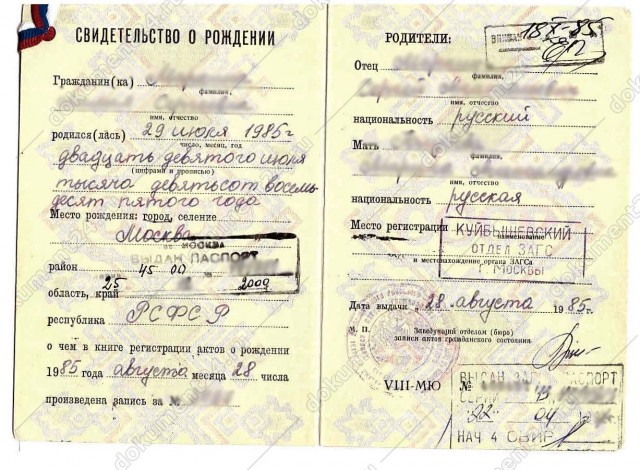 СВИДЕТЕЛЬСТВО О РОЖДЕНИИ
Гражданин(ка)
фамилия,
имя, отчество
родился(лась) 29 июля 1985г
число, месяц, год
двадцать девятого июля
(цифрами и прописью)
тысяча девятьсот восемь
десят пятого года
Место рождения: город, селение
Москва
г. МОСКВА
ВЫДАН ПАСПОРТ
район
45 00
25 2009
область, край
республика РСФСР
о чем в книге регистрации актов о рождении
1985 года августа месяца 28 числа
произведена запись за №
РОДИТЕЛИ:
18 X-85
Отец
фамилия,
имя, отчество
национальность русский
Мать
фамилия,
имя, отчество
национальность русская
Место регистрации
наименование
КУЙБЫШЕВСКИЙ
ОТДЕЛ ЗАГС
и местонахождение органа ЗАГСа
г МОСКВЫ
Дата выдачи „28 августа 1985г.
М. П.
Заведующий отделом (бюро)
записи актов гражданского состояния
VIII-МЮ
№
ВЫДАН ЗАГ ПАСПОРТ
СЕРИИ
22 04
НАЧ 4